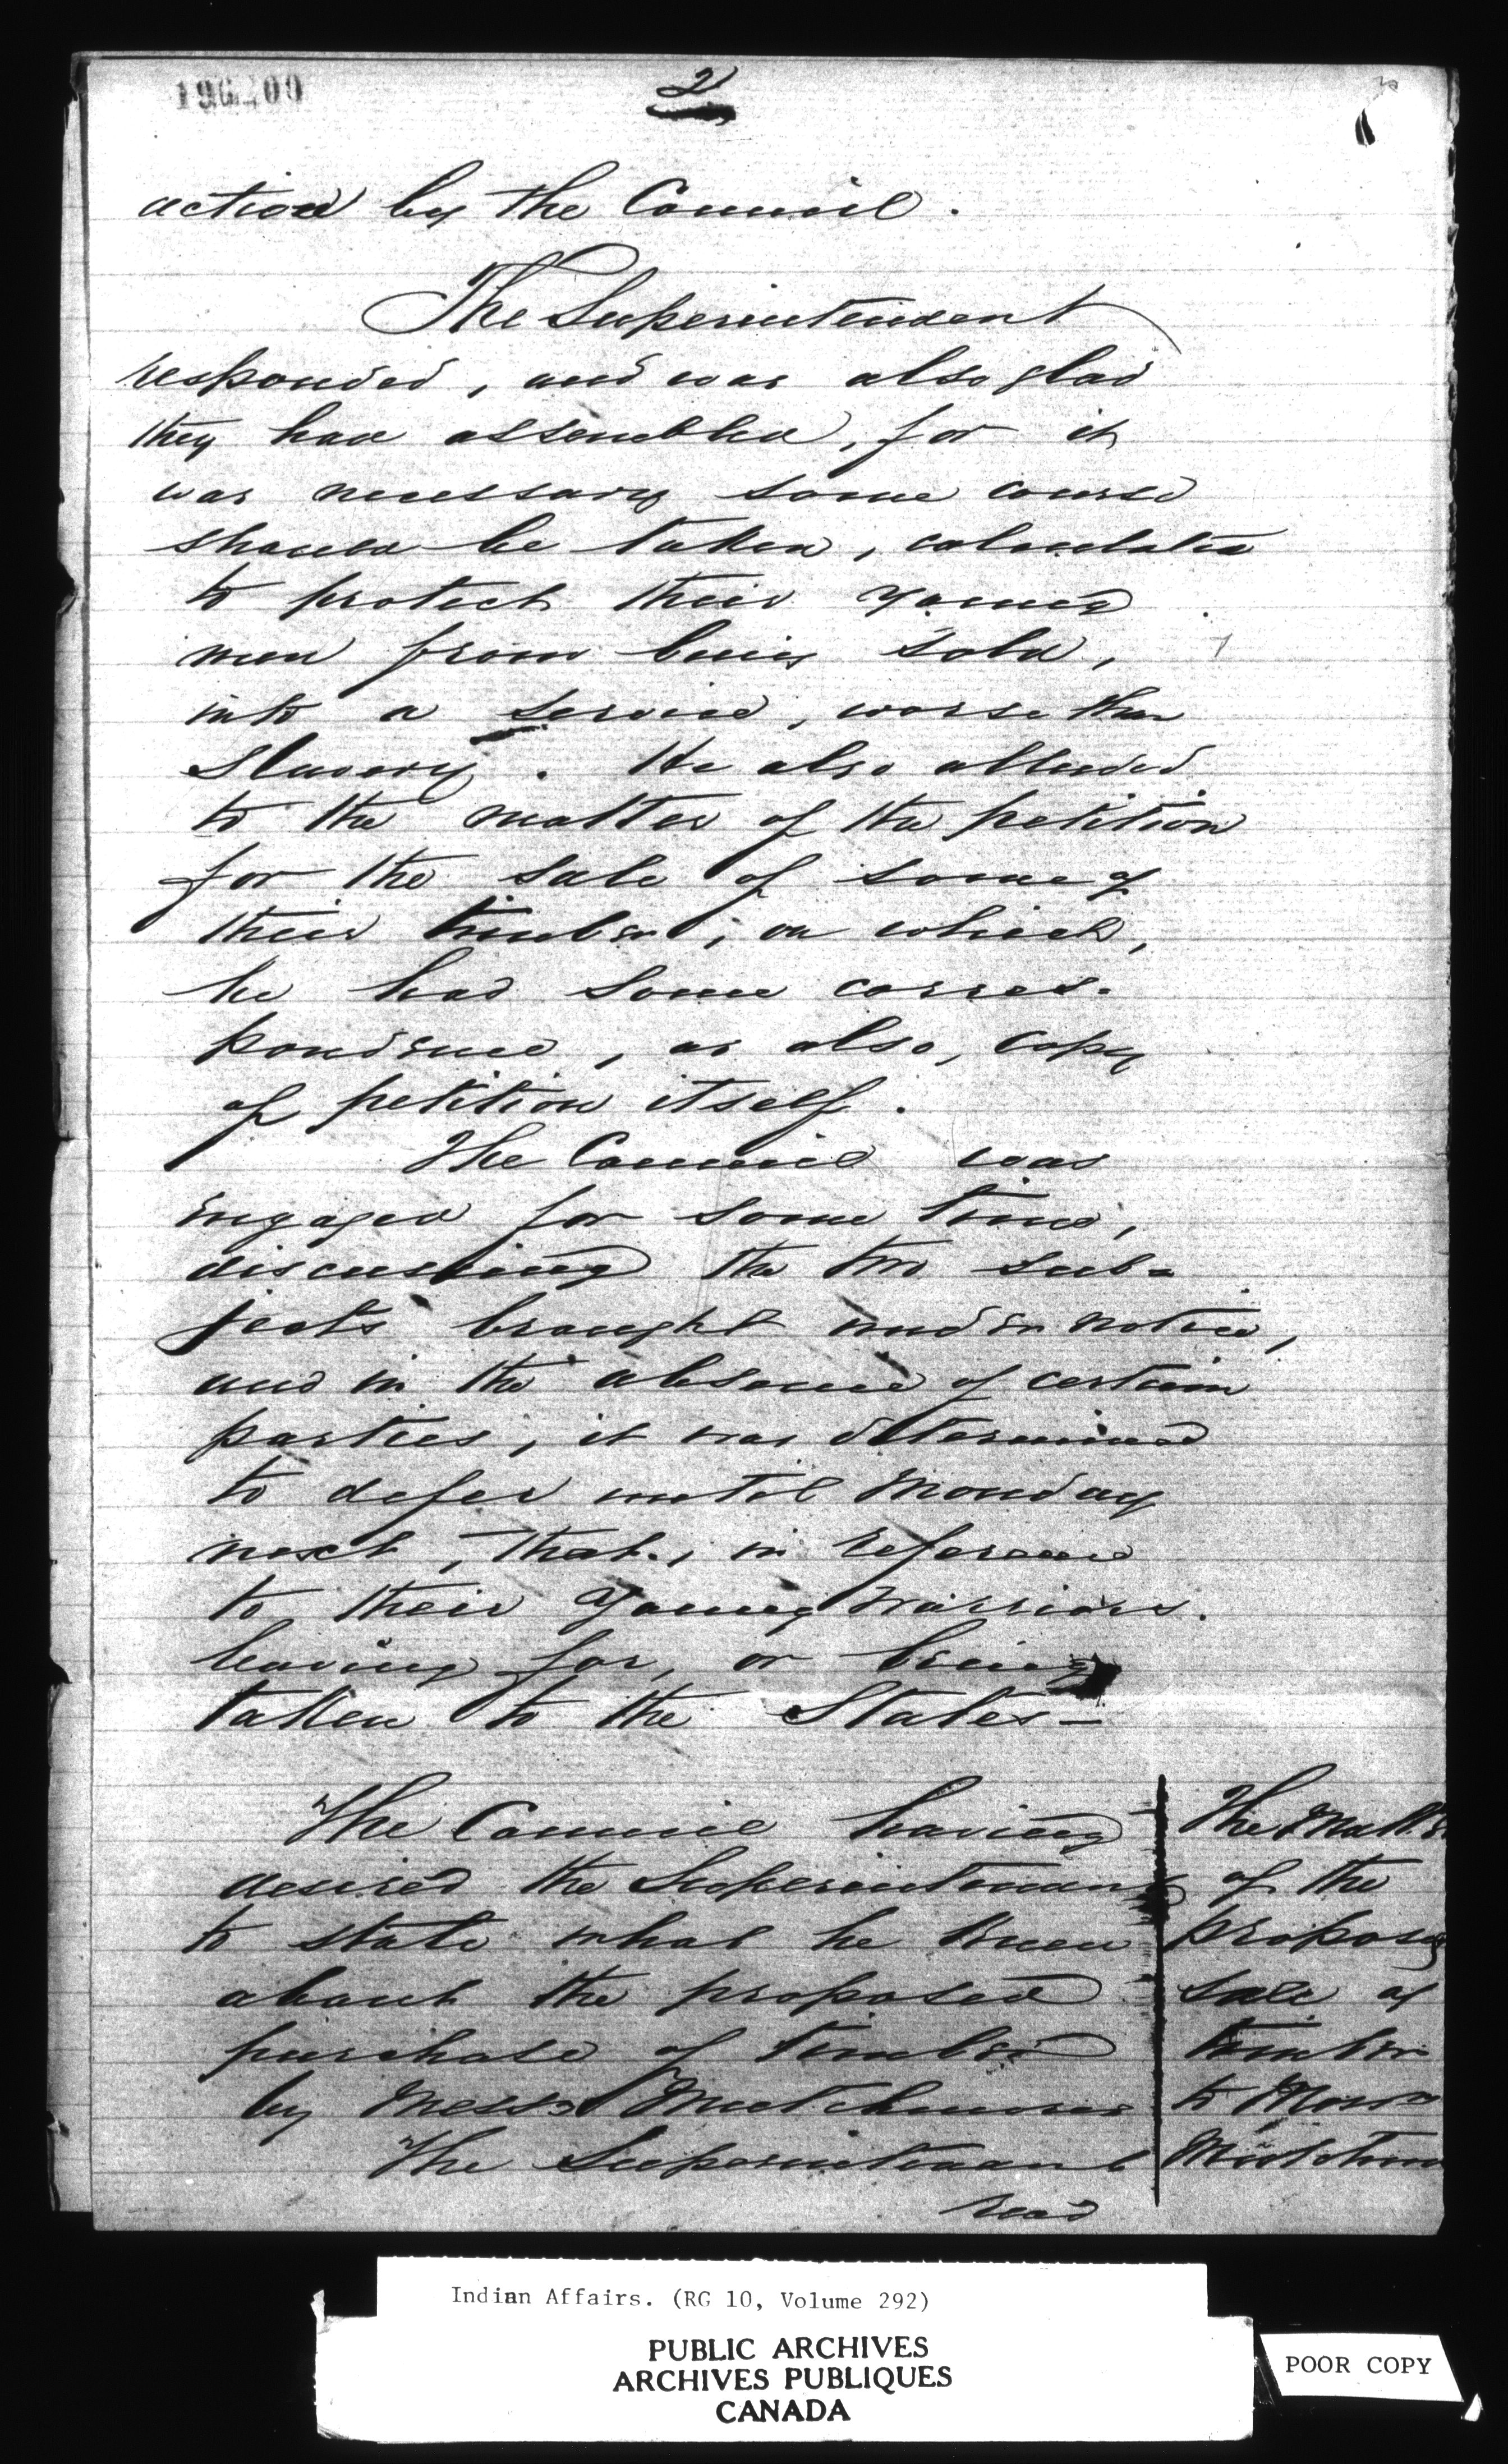 2
action by the Council.
The Superintendent
responded, and was also glad
they had assembled, for it
was necessary some course
should be taken, calculated
to protect their young
men from being sold,
into a service, worse than
Slavery. He also alluded
to the matter of the petition
for the sale of some of
their timber; on which,
he had some corres-
pondence, as also, copy
of petition itself.
The Council was
engaged for some time,
discussing the two sub-
jects brought under notice,
and in the absence of certain
parties, it was determined
to defer until Monday
next, that, in reference
to their young warriors.
leaving for, or being
taken to the States—
The Council having
desired the Superintendent
to state what he knew
about the proposed
purchase of timber
by Messrs Mutchmore
The Superintendent
read
The Matter
of the
proposed
sale of
timber
to Messrs
Mutchmo
Indian Affairs. (RG 10, Volume 292)
PUBLIC ARCHIVES
ARCHIVES PUBLIQUES
CANADA
POOR COPY